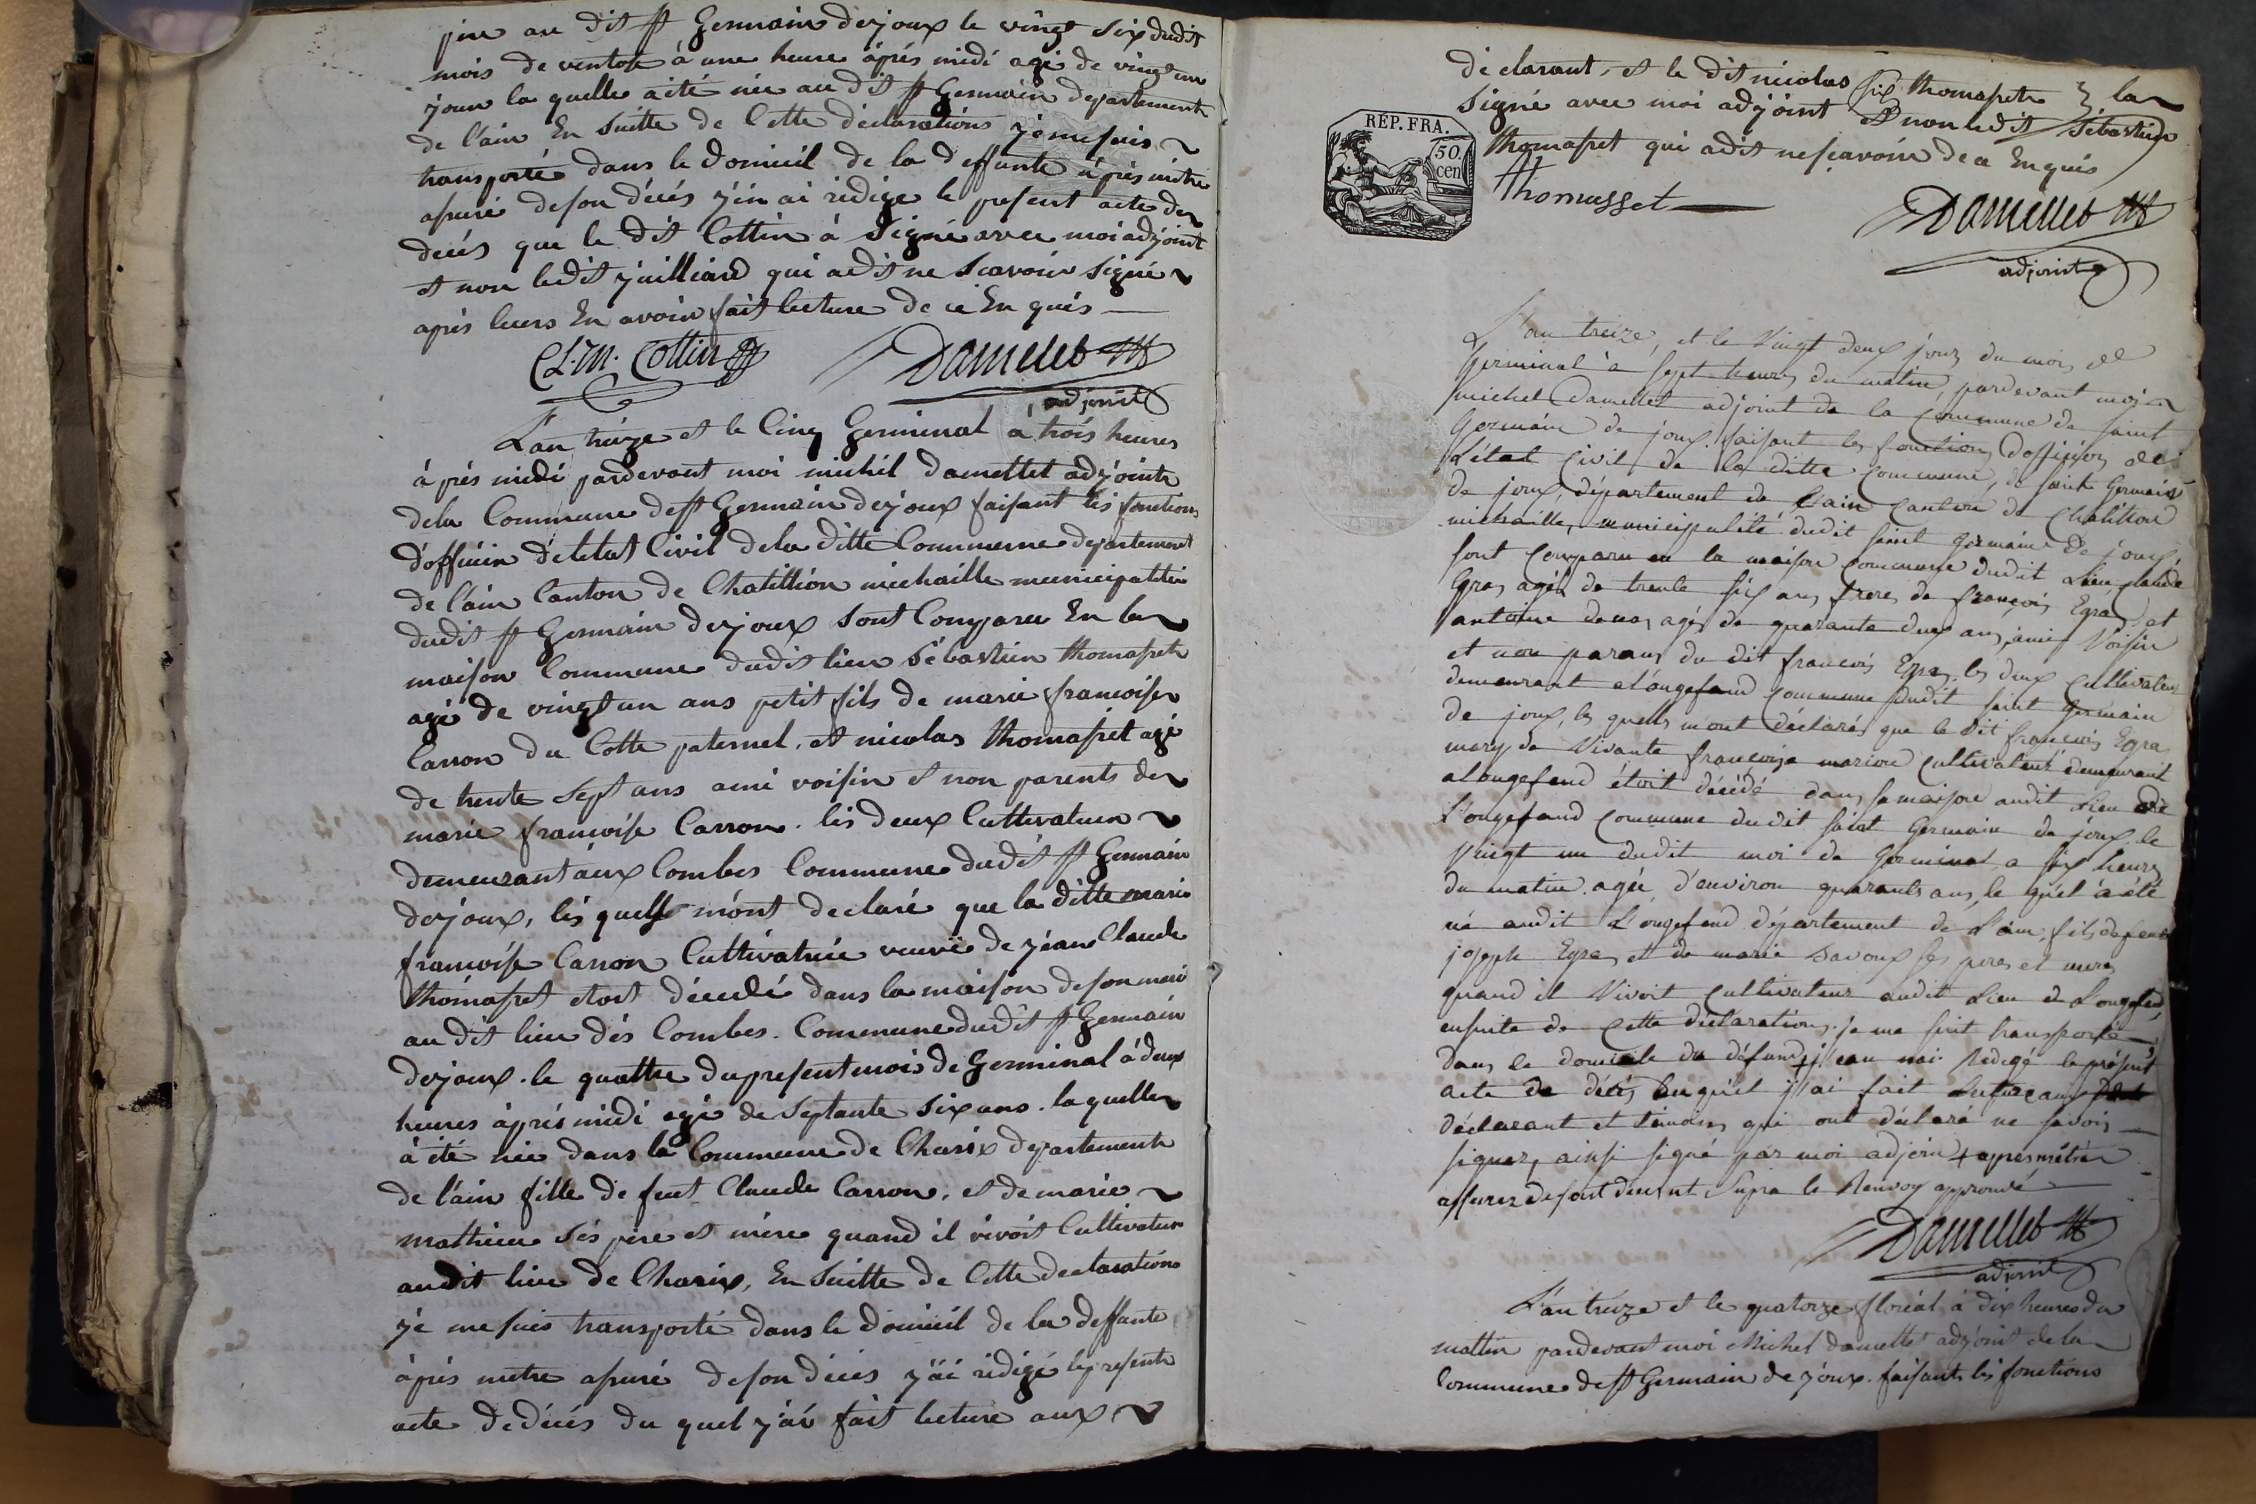 père au dit St Germain dejoux le vingt six dudit
mois de ventose à une heure après midi agé de vingt un
jour la quelle a été née au dit St Germain departement
de l'ain En Suitte de Cette déclarations je me suis
transporté dans le domicil de la deffunte après mêtre
assuré de son décés j'en ai rédigé le present acte de
decés que le dit Cottin à Signé avec moi adjoint
et non ledit juilliard qui adit ne Scavoir Signé
après leurs En avoir fait lecture de ce En quis
Cl. M. Cottin Damellet
adjoint
L'an treize et le Cinq Germinal à trois heures
après midi pardevant moi michel damellet adjointe
dela Commune de St Germain dejoux faisant les fonctions
d'officier de létat Civil dela ditte Commune departement
de l'ain Canton de Chatillion michaille municipalitée
dudit St Germain dejoux sont Comparu En la
maison Commune dudit lieu Sébastien thomasset
agé de vingt un ans petit fils de marie francoise
Carron du Cotte paternel, et nicolas thomasset agé
de trente Sept ans ami voisin et non parents de
marie francoise Carron. les deux Cultivateur
demeurant aux Combes Commune du dit St Germain
dejoux, les quelles m'ont declaré que la ditte marie
francoise Carron Cultivatrice veuve de jean Claude
thomasset etoit décedé dans la maison de son mari
au dit lieu des Combes. Commune dudit St Germain
dejoux. le quattre du present mois de Germinal à deux
heures après midi agé de Septante Six ans. la quelle
à été née dans la Commune de Charix departement
de l'ain fille de feut Claude Carron, et de marie
mathieu Ses père et mère quand il vivoit Cultivateur
audit lieu de Charix, En Suitte de Cette declarations
je me suis transporté dans le domicil de la deffunte
après metre assuré de son décés j'ai rédigé le present
acte de décés du quel j'ai fait lecture aux
déclarant, et le dit nicolas thomasset la
Signé avec moi adjoint Et non ledit Sébastien
thomasset qui adit ne scavoir de ce Enquis
RÉP. FRA.
50
cen
Thomasset
Damellet
adjoint
L'an treize, et le Vingt deux jour du mois de
Germinal à Sept heures du matin, pardevant moi
michel Damellet adjoint de la Commune de Saint
Germain de joux faisant les fonction dofficier de
L'état Civil de la ditte Commune, de Saint Germain
de joux, département de Lain Canton de Chatillon
michaille, municipalité dudit Saint Germain de joux,
sont Comparu en la maison Commune dudit Lieu, Claude
agés de trente six ans, frere de françois Egra, et
antoine agés de quarante deux ans, amis Voisin
et non parans du dit francois Egra, les deux Cultivateur
demeurant a Longefand Commune dudit Saint Germain
de joux, les quells m'ont déclarés que le dit francois Egra
mary de Vivante francoise marion Cultivateur demeurant
a Longefand étoit décédé dans sa maison audit Lieu de
Longefand Commune dudit Saint Germain de joux le
Vingt un dudit moi de Germinal a six heures
du matin. agée d'environ quarante ans, le quel a été
né audit Longefand département de Lain, fils de feut
joseph Egra, et de marie Savoux ses pere et mere
quand il Vivoit Cultivateur audit Lieu de Longefand,
ensuite de Cette déclarations. je me suit transporté
dans le domicile du défund j'ean nai Redigé le présent
acte de décés Enquel j'ai fait Lecture aux
déclarant et témoins qui ont déclaré ne savoir
signer, ainsi signé par moi adjoin + apres mêtre
assurez de son deces ut Supra le Renvoy approuvé
Damellet
adjoint
L'an treize et le quatorze floréal à dix heures du
mattin pardevant moi Michel damellet adjoint de la
Commune de St Germain de joux. faisant les fonctions